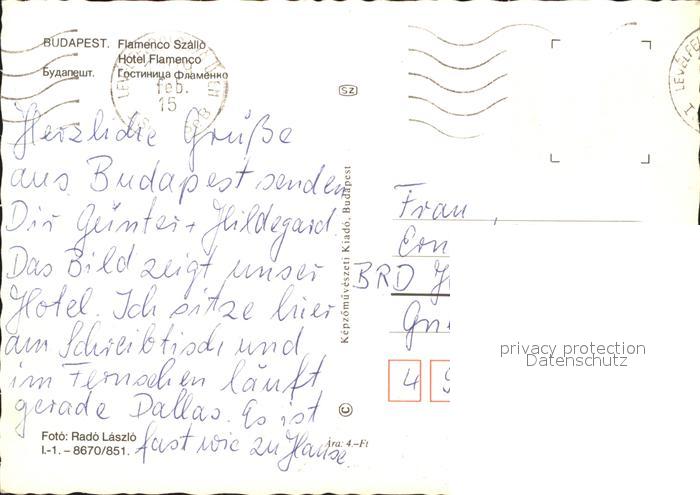 BUDAPEST. Flamenco Szálló
Hotel Flamenco
Будапешт. Гостиница Фламенко
feb.
15
SZ
Herzliche Grüße
aus Budapest senden
Dir Günter + Hildegard.
Das Bild zeigt unser
Hotel. Ich sitze hier
am Schreibtisch und
im Fernsehen läuft
gerade Dallas. Es ist
fast wie zu Hause.
Fotó: Radó László
I.-1. – 8670/851.
Ára: 4.–Ft
Képzőművészeti Kiadó, Budapest
©
Frau,
BRD
4
privacy protection
Datenschutz